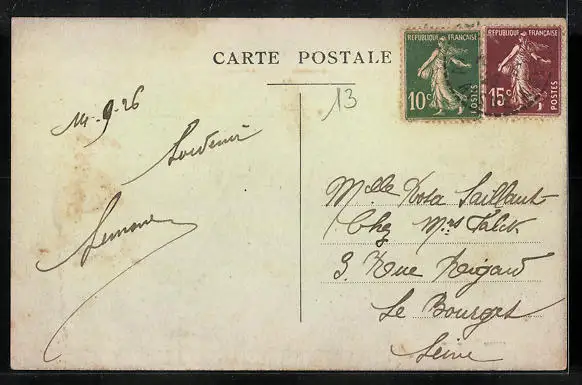 CARTE POSTALE
REPUBLIQUE FRANÇAISE
10c
POSTES
REPUBLIQUE FRANÇAISE
15c
POSTES
13
14-9-26
Souvenir
Simone
Mlle Rosa Saillant
Chez Mrs Falck
3. Rue Rigaud
Le Bourget
Seine